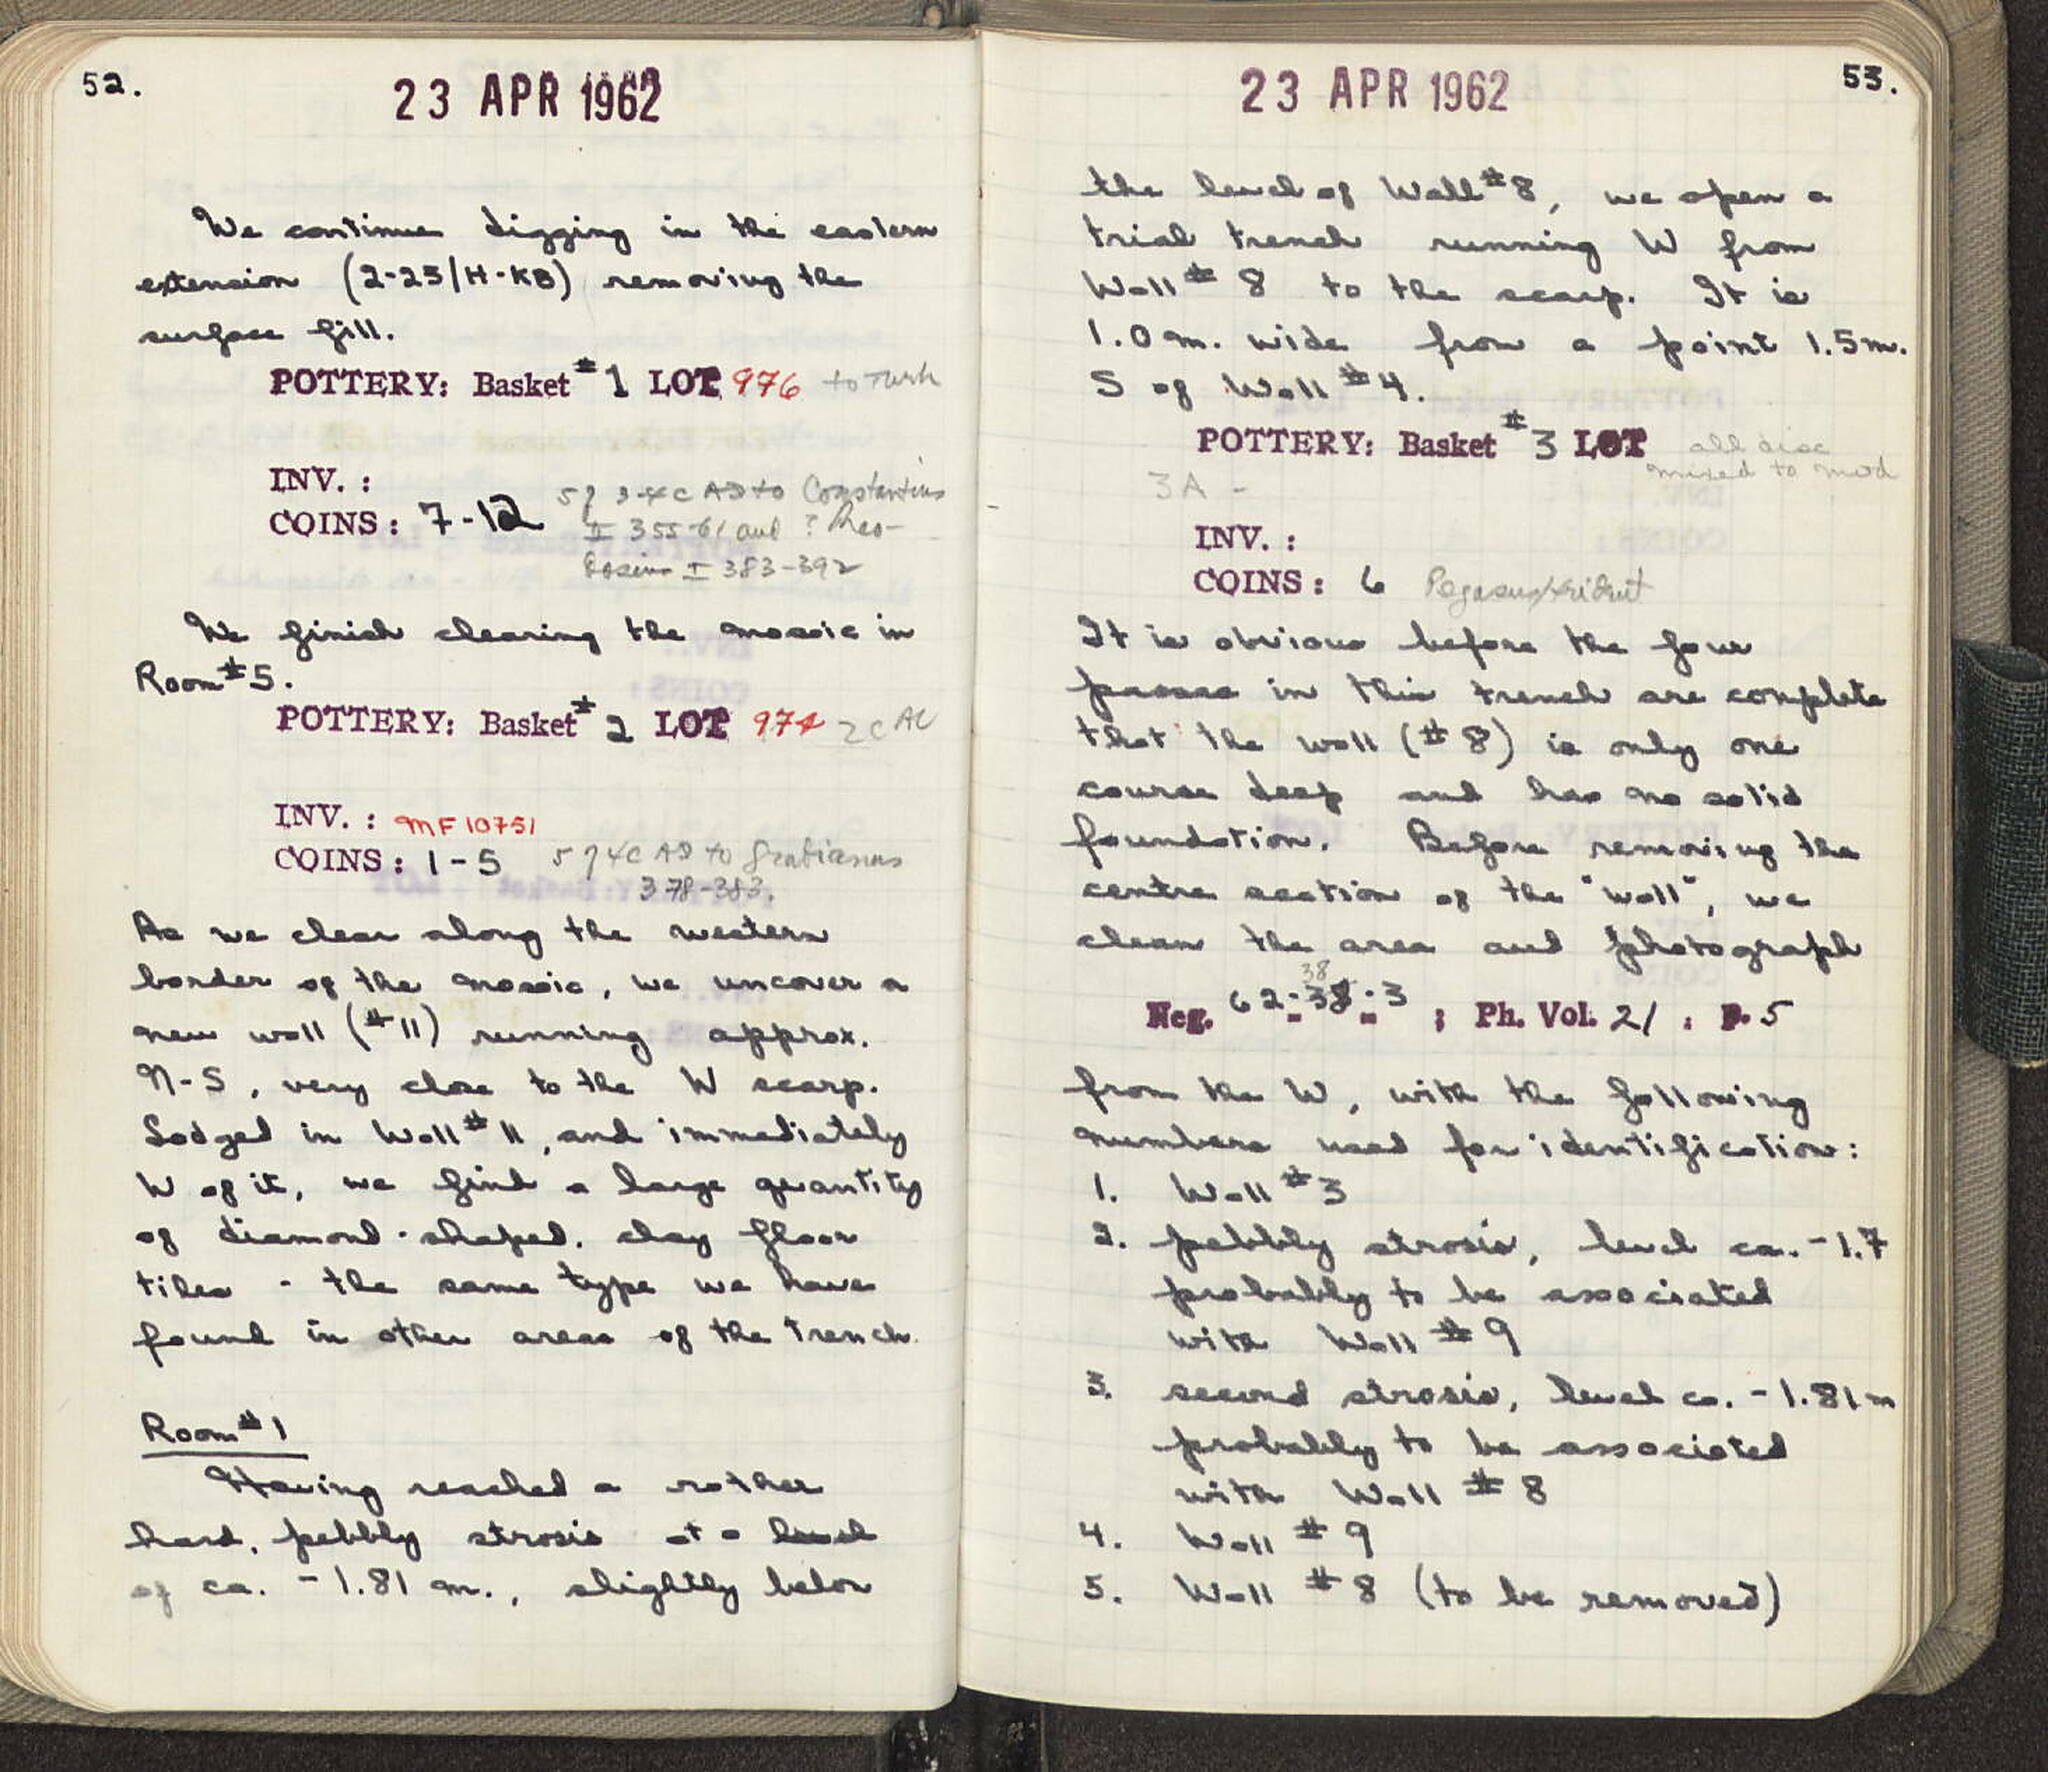 52.
23 APR 1962
We continue digging in the eastern
extension (2-25/H-KB) removing the
surface fill.
POTTERY: Basket #1 LOT 976 to Turk
INV. :
COINS: 7-12 5 3-4c AD to Constantius
II 355-61 and ? Theo-
dosius I 383-392
We finish clearing the mosaic in
Room #5.
POTTERY: Basket #2 LOT 974 2c AD
INV. : MF 10751
COINS: 1-5 5 4c AD to Gratianus
378-383.
As we clear along the western
border of the mosaic, we uncover a
new wall (#11) running approx.
N-S, very close to the W scarp.
Lodged in Wall #11, and immediately
W of it, we find a large quantity
of diamond-shaped, clay floor
tiles - the same type we have
found in other areas of the trench.
Room #1
Having reached a rather
hard, pebbly strosis at a level
of ca. -1.81 m., slightly below
53.
23 APR 1962
the level of Wall #8, we open a
trial trench running W from
Wall #8 to the scarp. It is
1.0 m. wide from a point 1.5 m.
S of Wall #4.
POTTERY: Basket #3 LOT all disc
mixed to mod
3A -
INV. :
COINS: 6 Pegasus/trident
It is obvious before the four
passes in this trench are complete
that the wall (#8) is only one
course deep and has no solid
foundation. Before removing the
centre section of the "wall", we
clean the area and photograph
38
Neg. 62-38-3 ; Ph. Vol. 21, p. 5
from the W, with the following
numbers used for identification:
1. Wall #3
2. pebbly strosis, level ca. -1.7
probably to be associated
with Wall #9
3. second strosis, level ca. -1.81 m
probably to be associated
with Wall #8
4. Wall #9
5. Wall #8 (to be removed)